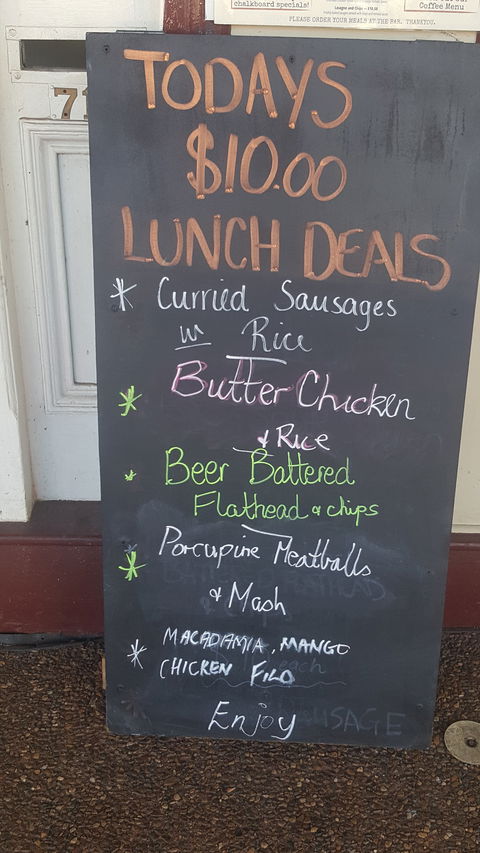 chalkboard specials!
Coffee Menu
PLEASE ORDER YOUR MEALS AT THE BAR. THANKYOU.
7
TODAYS
$10.00
LUNCH DEALS
* Curried Sausages
w Rice
* Butter Chicken
& Rice
* Beer Battered
Flathead & chips
* Porcupine Meatballs
& Mash
* MACADAMIA, MANGO
CHICKEN FILO
Enjoy
SAUSAGE